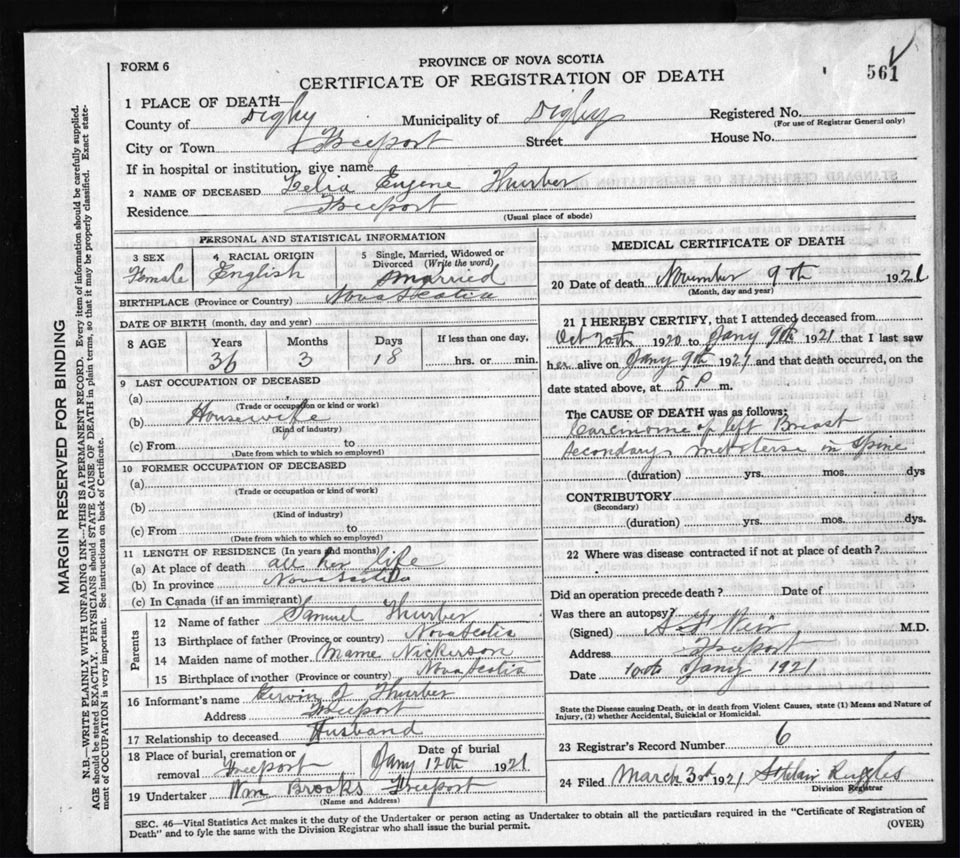 FORM 6
PROVINCE OF NOVA SCOTIA
CERTIFICATE OF REGISTRATION OF DEATH
561
1 PLACE OF DEATH—
County of Digby Municipality of Digby Registered No.
(For use of Registrar General only)
City or Town Freeport Street House No.
If in hospital or institution, give name
2 NAME OF DECEASED Lelia Eugene Thurber
Residence Freeport
(Usual place of abode)
PERSONAL AND STATISTICAL INFORMATION
3 SEX 4 RACIAL ORIGIN 5 Single, Married, Widowed or Divorced (Write the word)
Female English Married
BIRTHPLACE (Province or Country) Nova Scotia
DATE OF BIRTH (month, day and year)
8 AGE Years Months Days If less than one day,
36 3 18 hrs. or min.
9 LAST OCCUPATION OF DECEASED
(a)
(Trade or occupation or kind or work)
(b) Housewife
(Kind of industry)
(c) From to
(Date from which to which so employed)
10 FORMER OCCUPATION OF DECEASED
(a)
(Trade or occupation or kind of work)
(b)
(Kind of industry)
(c) From to
(Date from which to which so employed)
11 LENGTH OF RESIDENCE (In years and months)
(a) At place of death all her life
(b) In province Nova Scotia
(c) In Canada (if an immigrant)
Parents
12 Name of father Samuel Thurber
13 Birthplace of father (Province or country) Nova Scotia
14 Maiden name of mother Mame Nickerson
15 Birthplace of mother (Province or country) Nova Scotia
16 Informant's name Thurber
Address Freeport
17 Relationship to deceased Husband
18 Place of burial, cremation or removal Freeport Date of burial Jany 12th 1921
19 Undertaker Wm Brooks Freeport
(Name and Address)
MEDICAL CERTIFICATE OF DEATH
20 Date of death 9th 1921
(Month, day and year)
21 I HEREBY CERTIFY, that I attended deceased from
Oct 20th 1920 to Jany 9th 1921 that I last saw
her alive on Jany 9th 1921 and that death occurred, on the
date stated above, at 5 P m.
The CAUSE OF DEATH was as follows:
Carcinome of left Breast
Secondary in Spine
(duration) yrs. mos. dys
CONTRIBUTORY
(Secondary)
(duration) yrs. mos. dys.
22 Where was disease contracted if not at place of death?
Did an operation precede death? Date of
Was there an autopsy?
(Signed) M.D.
Address Freeport
Date 10th Jany 1921
State the Disease causing Death, or in death from Violent Causes, state (1) Means and Nature of
Injury, (2) whether Accidental, Suicidal or Homicidal.
23 Registrar's Record Number 6
24 Filed March 3rd 1921 Ruggles
Division Registrar
SEC. 46—Vital Statistics Act makes it the duty of the Undertaker or person acting as Undertaker to obtain all the particulars required in the "Certificate of Registration of
Death" and to fyle the same with the Division Registrar who shall issue the burial permit.
(OVER)
MARGIN RESERVED FOR BINDING
N.B.—WRITE PLAINLY WITH UNFADING INK—THIS IS A PERMANENT RECORD. Every item of information should be carefully supplied.
AGE should be stated EXACTLY. PHYSICIANS should STATE CAUSE OF DEATH in plain terms, so that it may be properly classified. Exact state-
ment of OCCUPATION is very important. See instructions on back of Certificate.